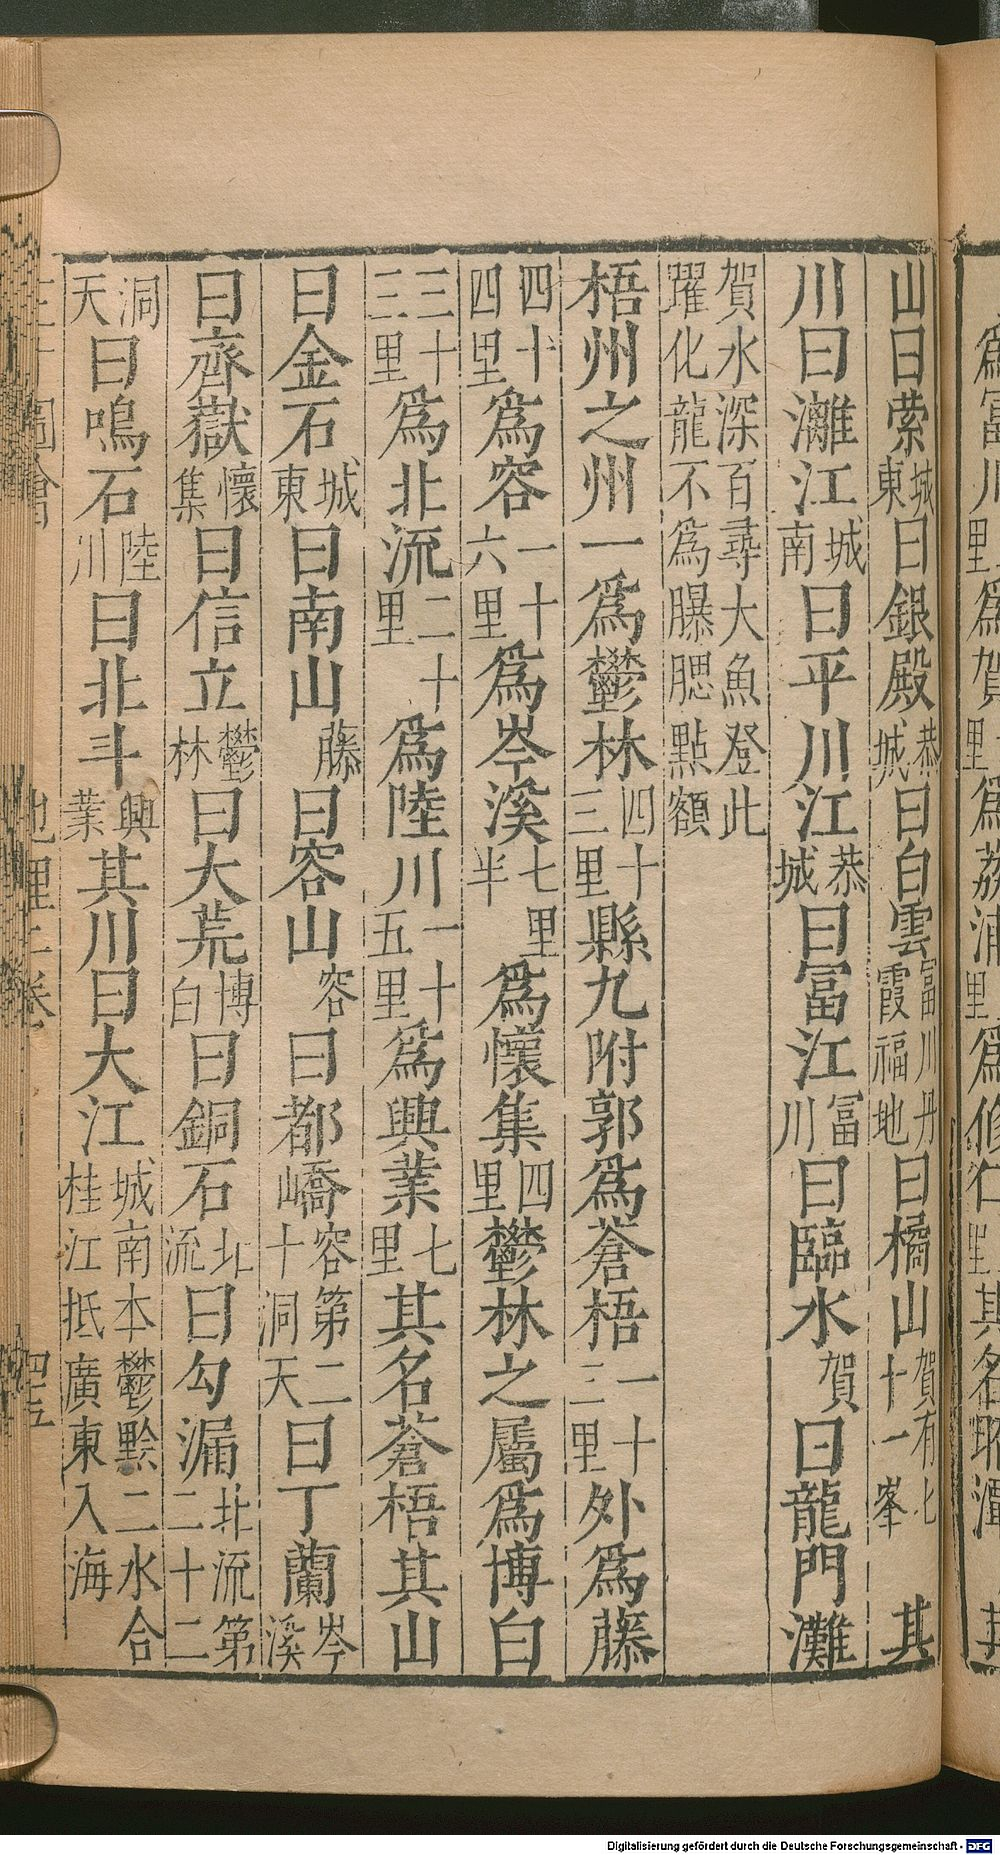 山曰㟽城東曰銀殿恭城曰白雲富川丹霞福地曰橘山賀有七十一峯其
川曰灕江城南曰平川江恭城曰富江富川曰臨水賀曰龍門灘
賀水深百尋大魚登此躍化龍不為曝腮點額
梧州之州一爲鬱林四十三里縣九附郭爲蒼梧一十三里外爲藤
四十四里爲容一十六里爲岑溪七里半爲懷集四里鬱林之屬爲博白
三十三里爲北流二十里爲陸川一十五里爲興業七里其名蒼梧其山
曰金石城東曰南山藤曰容山容曰都嶠容第二十洞天曰丁蘭岑溪
曰齊嶽懷集曰信立鬱林曰大荒博白曰銅石北流曰勾漏北流第二十二
洞天曰鳴石陸川曰北斗興業其川曰大江城南本鬱黔二水合桂江抵廣東入海
三才圖會
地理二卷
四五
Digitalisierung gefördert durch die Deutsche Forschungsgemeinschaft - DFG